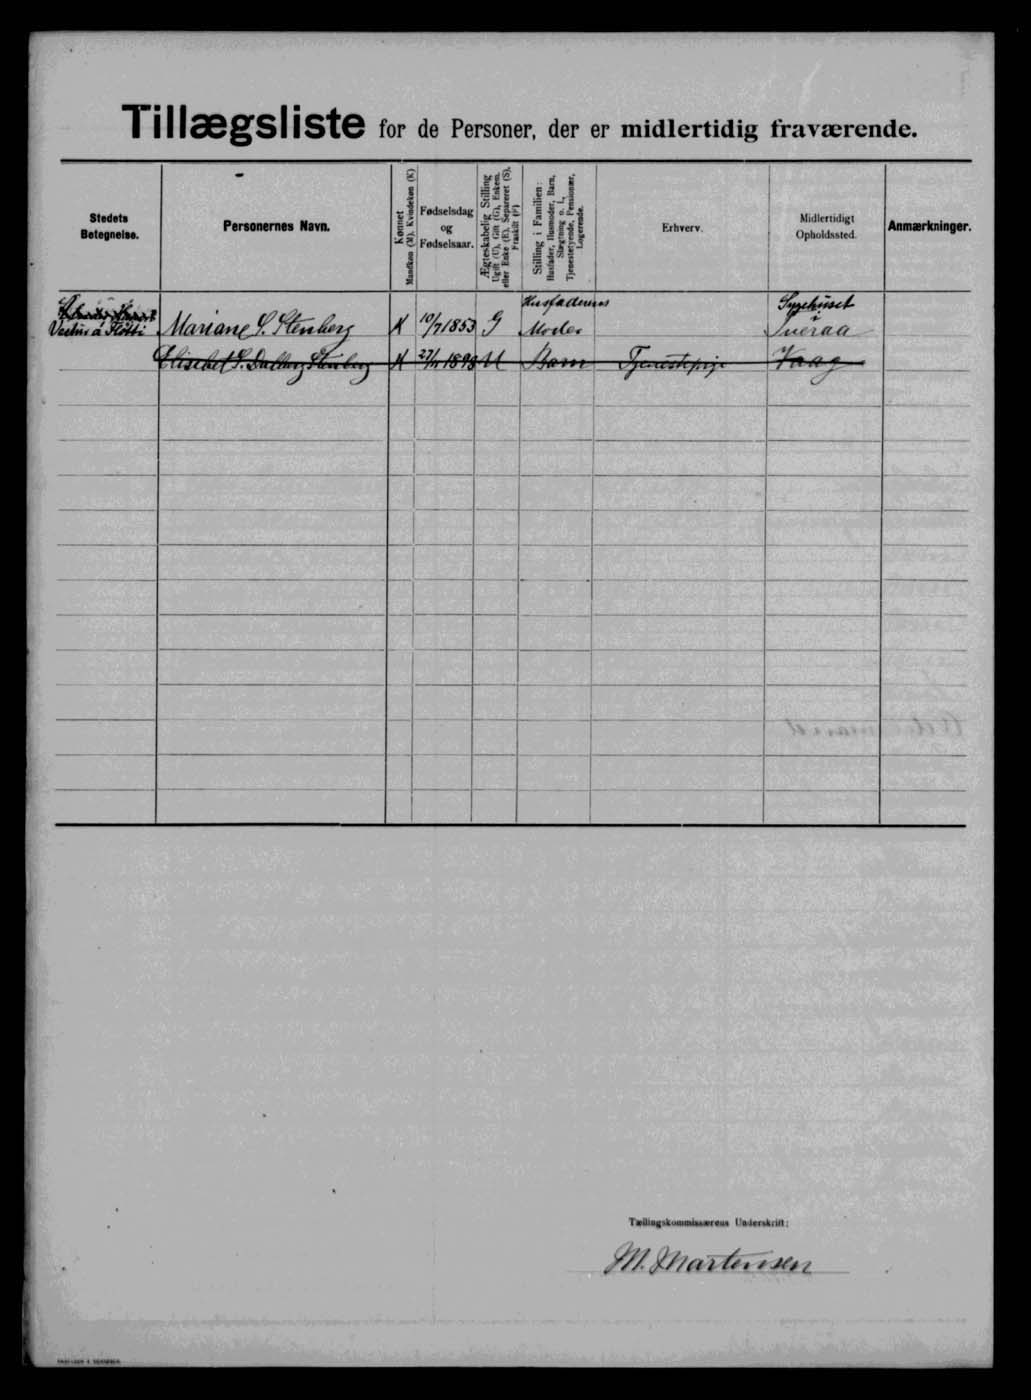 Tillægsliste for de Personer, der er midlertidig fraværende.
Stedets Betegnelse.
Personernes Navn.
Kønnet
Mandkøn (M), Kvindekøn (K)
Fødselsdag og Fødselsaar.
Ægteskabelig Stilling
Ugift (U), Gift (G), Enkem. eller Enke (E), Separeret (S), Fraskilt (F)
Stilling i Familien:
Husfader, Husmoder, Barn, Slægtning o. l., Tjenestetyende, Pensionær, Logerende.
Erhverv.
Midlertidigt Opholdssted.
Anmærkninger.
Vestur á Fløtti Mariane S. Stenberg K 10/7 1853 G Husfaderens Moder Sygehuset i Tveraa
Elisabet S. Dalberg Stenberg K 27/11 1898 U Barn Tjenestepige Vaag
Tællingskommissærens Underskrift:
M. Martensen